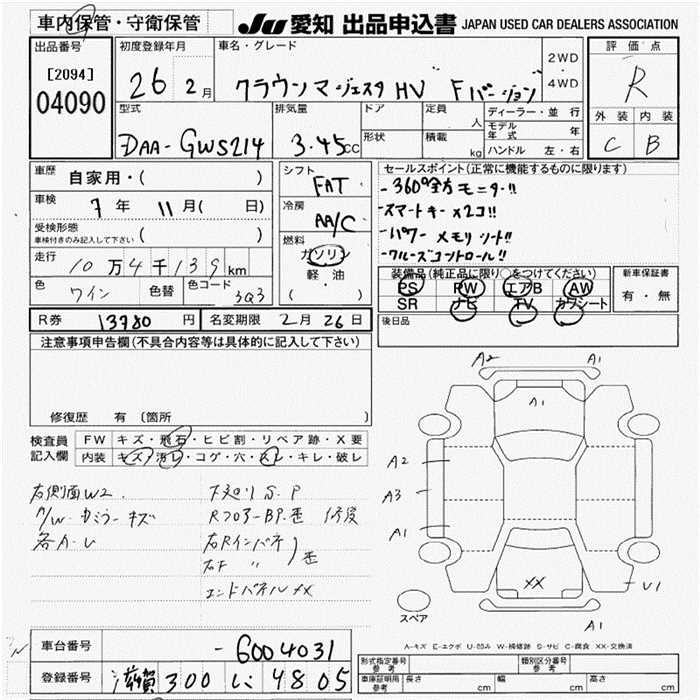 車内保管・守衛保管
JU 愛知 出品申込書 JAPAN USED CAR DEALERS ASSOCIATION
出品番号
[2094]
04090
初度登録年月
26 2月
車名・グレード
クラウンマジェスタ HV Fバージョン
2WD
・
4WD
評価点
R
外装 内装
C B
型式
DAA-GWS214
排気量
3.45cc
ドア
形状
定員 人
積載 kg
ディーラー・並行
モデル年式 年
ハンドル 左・右
車歴 自家用・( )
車検 7年 11月( 日)
受検形態
車検付きのみ記入して下さい ( )
走行 10万4千139km
色 ワイン 色替 色コード 3Q3
シフト
FAT
冷房
AA/C
燃料
ガソリン
軽・油
( )
セールスポイント(正常に機能するものに限ります)
-360°全方モニター!!
-スマートキー×2コ!!
-パワーメモリシート!!
-クルーズコントロール!!
装備品(純正品に限り○をつけてください)
PS PW エアB AW
SR ナビ TV カワシート
新車保証書
有・無
後日品
R券 13780円 名変期限 2月26日
注意事項申告欄(不具合内容等は具体的に記入して下さい)
修復歴 有 〔箇所
検査員
記入欄
FW キズ・飛石・ヒビ割・リペア跡・X要
内装 キズ・汚レ・コゲ・穴・スレ・キレ・破レ
右側面W2.
下廻りS.P
A/W・カミラーキズ
Rフロアー・BP.歪 修復
各A・U
右Rインパネ
右F 〃
歪
エンドパネルXX
A2 A1
A1
A2
A3
A1
XX
U1
A1
スペア
A-キズ E-エクボ U-凹み W-補修跡 S-サビ C-腐食 XX-交換済
車台番号 -6004031
登録番号 滋賀 300 に 4805
形式指定番号
参考
類別区分番号
参考
車庫証明用
参考
長さ cm 幅 cm 高さ cm